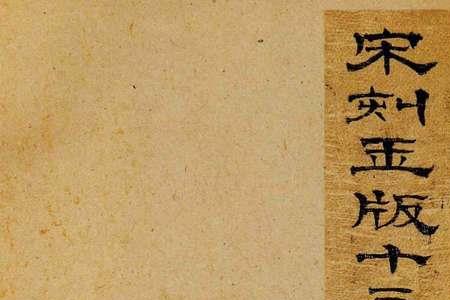 宋刻玉版十